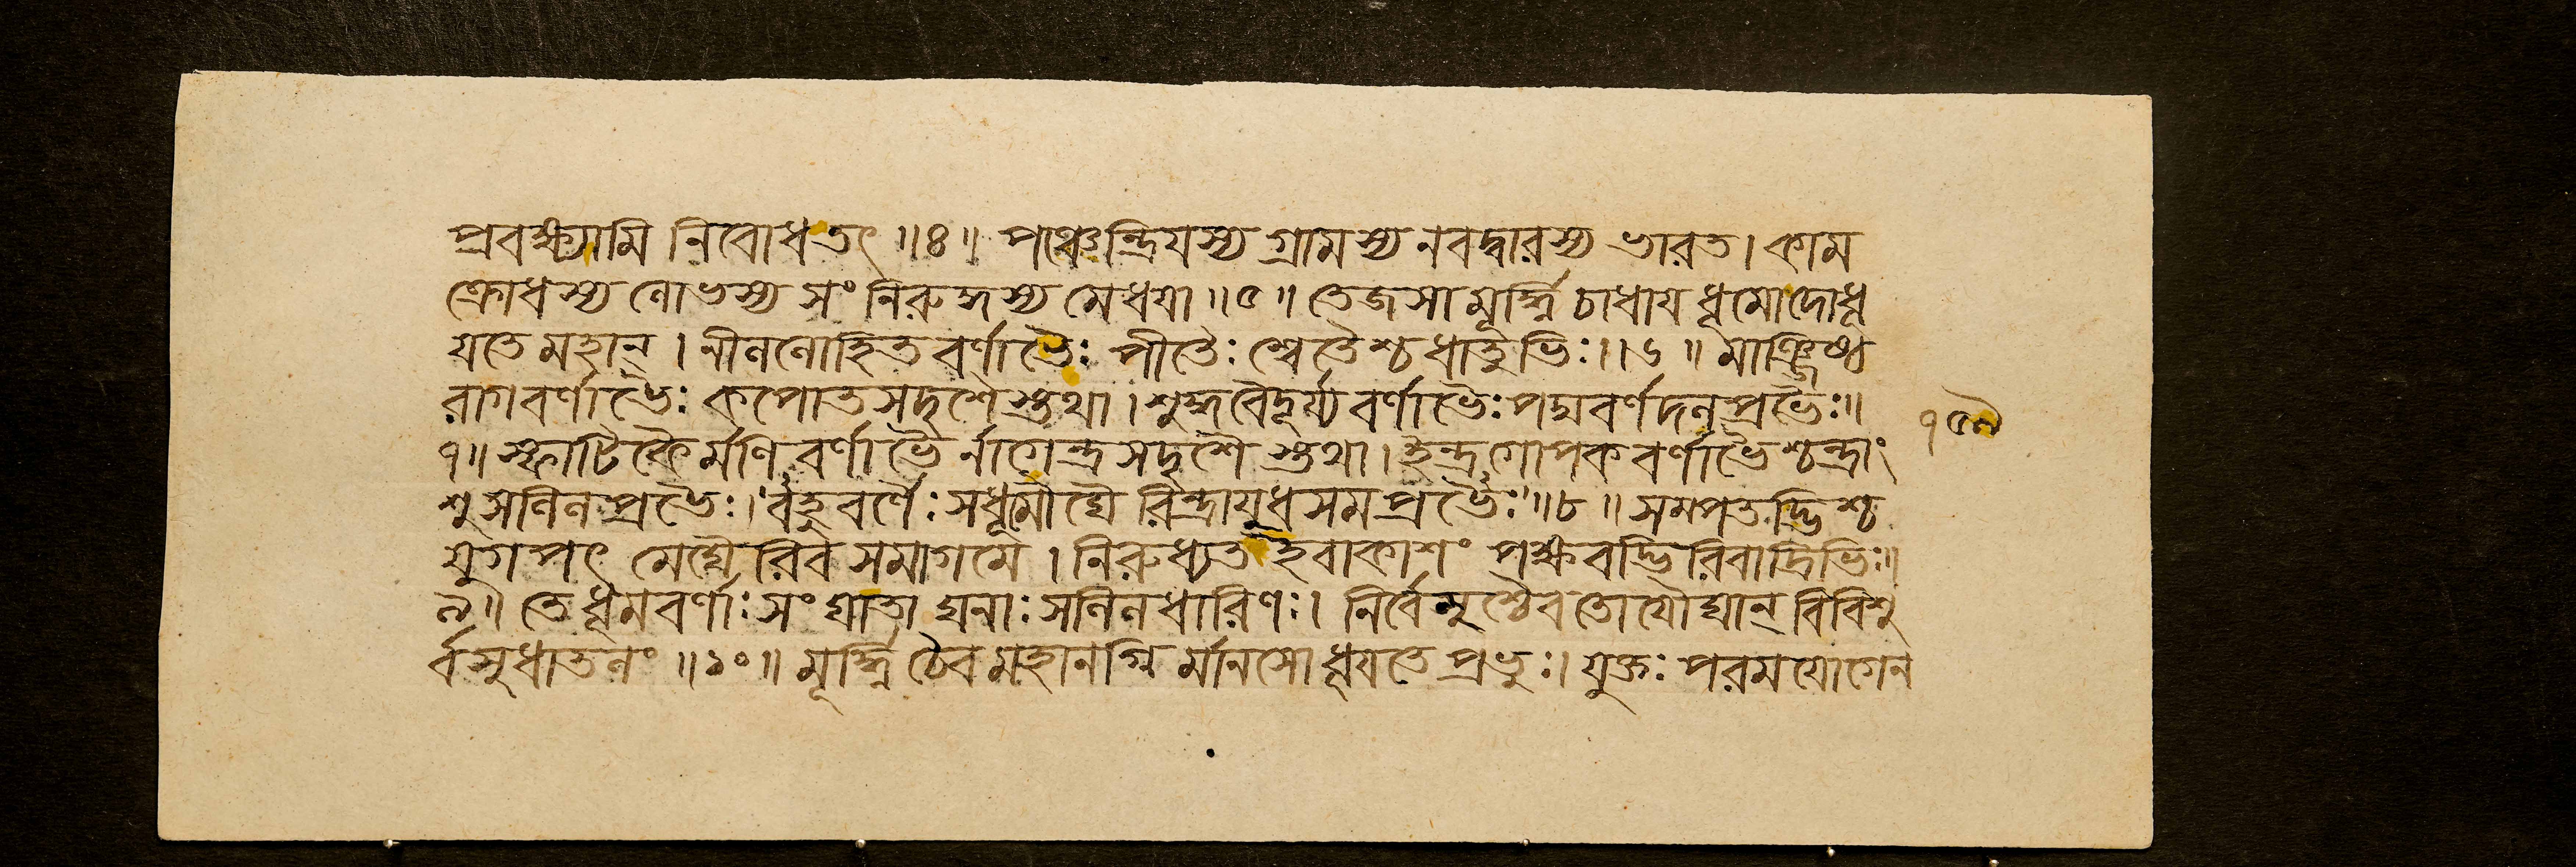 প্রবক্ষ্যামি নিবোধতৎ ॥৪॥ পঞ্চেন্দ্রিযস্য গ্রামস্য নবদ্বারস্য ভারত। কাম
ক্রোধস্য লোভস্য সংনিরুদ্ধস্য মেধযা ॥৫॥ তেজসা মূর্দ্ধ্নি চাধায ধূমোদোধূ
যতে মহান্। নীললোহিতবর্ণাভৈঃ পীতৈঃ শ্বেতৈশ্চ ধাতুভিঃ।।৬॥ মাঞ্জিষ্ঠ
রাগবর্ণাভৈঃ কপোতসদৃশৈস্তথা। শুদ্ধবৈদূর্য্যবর্ণাভৈঃ পদ্মবর্ণদলপ্রভৈঃ॥
৭॥ স্ফাটিকৈর্মণিবর্ণাভৈর্নাগেন্দ্রসদৃশৈস্তথা। ইন্দ্রগোপকবর্ণাভৈশ্চন্দ্রাং
শুসলিলপ্রভৈঃ। বহুবর্ণৈঃ সধূমৌঘৈরিন্দ্রাযুধসমপ্রভৈঃ॥৮॥ সম্পতদ্ভিশ্চ
যুগপৎ মেঘৈরিব সমাগমে। নিরুধ্যত ইবাকাশং পক্ষবদ্ভিরিবাদ্রিভিঃ॥
৯॥ তে ধূমবর্ণাঃ সংঘাতা ঘনাঃ সলিলধারিণঃ। নির্বেমুশ্চৈব তোযৌঘান্ বিবিশু
র্বসুধাতলং ॥১০॥ মূর্দ্ধ্নি চৈব মহানগ্নির্মানসো ধূযতে প্রভুঃ। যুক্তঃ পরমযোগেন
৭৫৯